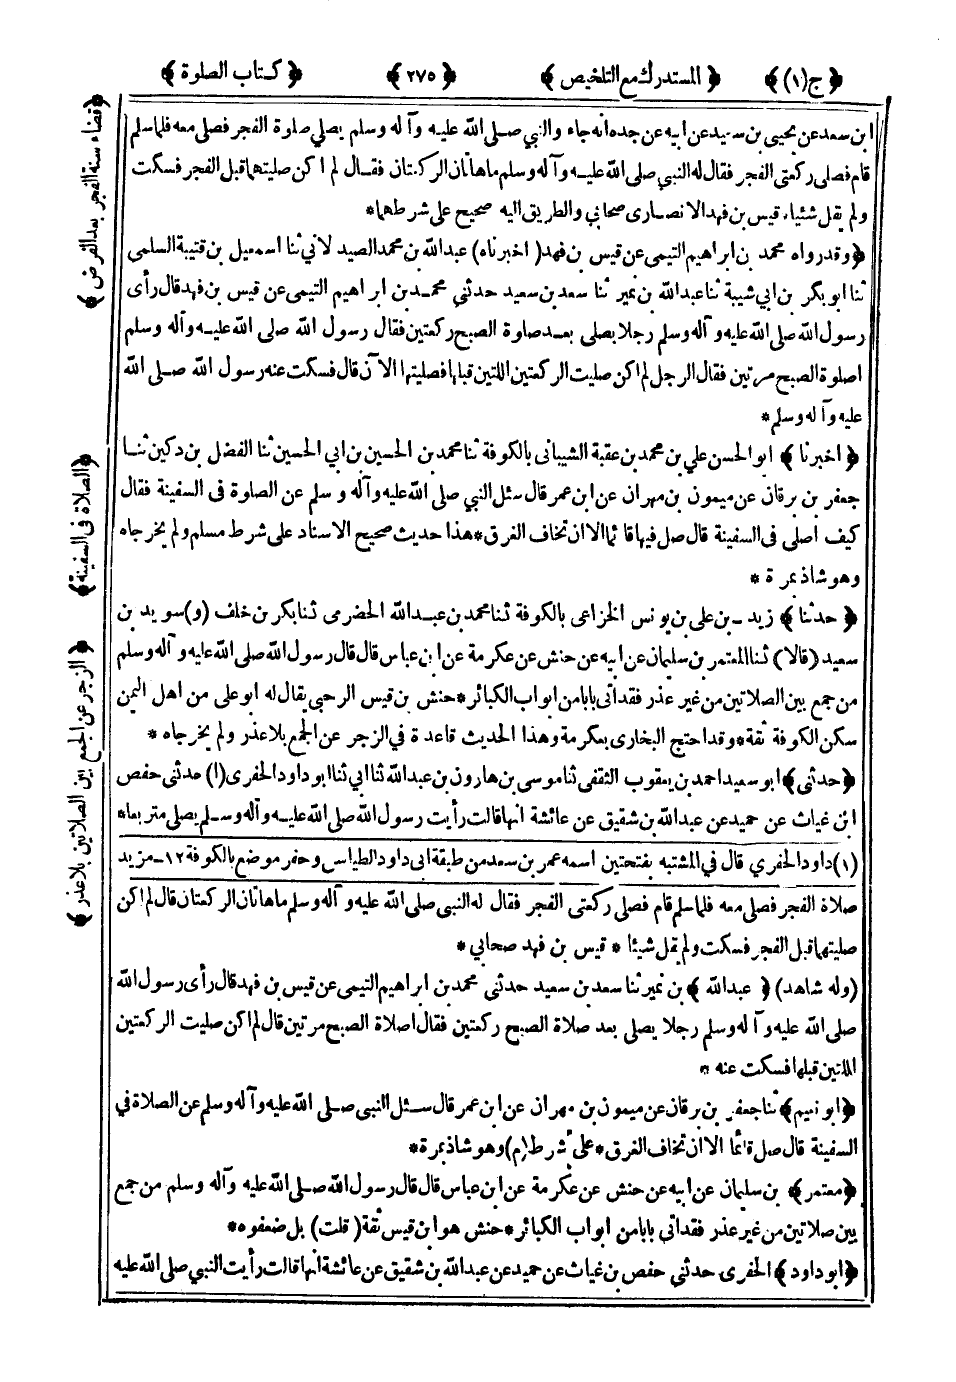 ﴿ج(١)﴾ ﴿المستدرك مع التلخيص﴾ ﴿٢٧٥﴾ ﴿كتاب الصلوة﴾
ابن سعد عن يحيى بن سعيد عن ابيه عن جده انه جاء والنبي صلى الله عليه وآله وسلم يصلي صلوة الفجر فصلى معه فلما سلم
قام فصلى ركعتى الفجر فقال له النبي صلى الله عليه وآله وسلم ماهاتان الركعتان فقال لم اكن صليتهما قبل الفجر فسكت
ولم يقل شيئا، قيس بن فهد الانصارى صحابي والطريق اليه صحيح على شرطهما*
﴿وقدرواه محمد بن ابراهيم التيمى عن قيس بن فهد (اخبرناه) عبدالله بن محمد الصيدلاني ثنا اسمعيل بن قتيبة السلمى
ثنا ابو بكر بن ابي شيبة ثنا عبدالله بن نمير ثنا سعد بن سعيد حدثني محمد بن ابراهيم التيمى عن قيس بن فهد قال رأى
رسول الله صلى الله عليه وآله وسلم رجلا يصلى بعد صلوة الصبح ركعتين فقال رسول الله صلى الله عليه وآله وسلم
اصلوة الصبح مرتين فقال الرجل لم اكن صليت الركعتين اللتين قبلها فصليتها الآن قال فسكت عنه رسول الله صلى الله
عليه وآله وسلم*
﴿اخبرنا﴾ ابو الحسن علي بن محمد بن عقبة الشيبانى بالكوفة ثنا محمد بن الحسين بن ابي الحسين ثنا الفضل بن دكين ثنا
جعفر بن برقان عن ميمون بن مهران عن ابن عمر قال سئل النبي صلى الله عليه وآله وسلم عن الصلوة فى السفينة فقال
كيف اصلى فى السفينة قال صل فيها قائما الا ان تخاف الغرق*هذا حديث صحيح الاسناد على شرط مسلم ولم يخرجاه
وهو شاذ بمرة *
﴿حدثنا﴾ زيد بن على بن يونس الخزاعى بالكوفة ثنا محمد بن عبدالله الحضرمى ثنا بكر بن خلف (و) سويد بن
سعيد (قالا) ثنا المعتمر بن سليمان عن ابيه عن حنش عن عكرمة عن ابن عباس قال قال رسول الله صلى الله عليه وآله وسلم
من جمع بين الصلاتين من غير عذر فقد اتى بابا من ابواب الكبائر*حنش بن قيس الرحبي يقال له ابو على من اهل اليمن
سكن الكوفة ثقة*وقد احتج البخارى بعكرمة وهذا الحديث قاعدة في الزجر عن الجمع بلاعذر ولم يخرجاه *
﴿حدثني﴾ ابو سعيد احمد بن يعقوب الثقفى ثنا موسى بن هارون بن عبدالله ثنا ابي ثنا ابو داود الحفرى (١) حدثني حفص
ابن غياث عن حميد عن عبدالله بن شقيق عن عائشة انها قالت رأيت رسول الله صلى الله عليه وآله وسلم يصلى متربعا*
(١) داود الحفري قال في المشتبه بفتحتين اسمه عمر بن سعد من طبقة ابى داود الطيالسى وحفر موضع بالكوفة ١٢-مزيد
صلاة الفجر فصلى معه فلما سلم قام فصلى ركعتى الفجر فقال له النبي صلى الله عليه وآله وسلم ماهاتان الركعتان قال لم اكن
صليتهما قبل الفجر فسكت ولم يقل شيئا * قيس بن فهد صحابي *
(وله شاهد) ﴿عبدالله﴾ بن نمير ثنا سعد بن سعيد حدثني محمد بن ابراهيم التيمى عن قيس بن فهد قال رأى رسول الله
صلى الله عليه وآله وسلم رجلا يصلى بعد صلاة الصبح ركعتين فقال اصلاة الصبح مرتين قال لم اكن صليت الركعتين
اللتين قبلها فسكت عنه *
﴿ابو نعيم﴾ ثنا جعفر بن برقان عن ميمون بن مهران عن ابن عمر قال سئل النبي صلى الله عليه وآله وسلم عن الصلاة في
السفينة قال صل قائما الا ان تخاف الغرق*على شرط(م) وهو شاذ بمرة*
﴿معتمر﴾ بن سليمان عن ابيه عن حنش عن عكرمة عن ابن عباس قال قال رسول الله صلى الله عليه وآله وسلم من جمع
بين صلاتين من غير عذر فقد اتى بابا من ابواب الكبائر*حنش هو ابن قيس ثقة (قلت) بل ضعفوه*
﴿ابو داود﴾ الحفرى حدثني حفص بن غياث عن حميد عن عبدالله بن شقيق عن عائشة انها قالت رأيت النبي صلى الله عليه
﴿قضاء سنة الفجر بعد الفرض﴾
﴿الصلاة فى السفينة﴾
﴿الزجر عن الجمع بين الصلاتين بلاعذر﴾